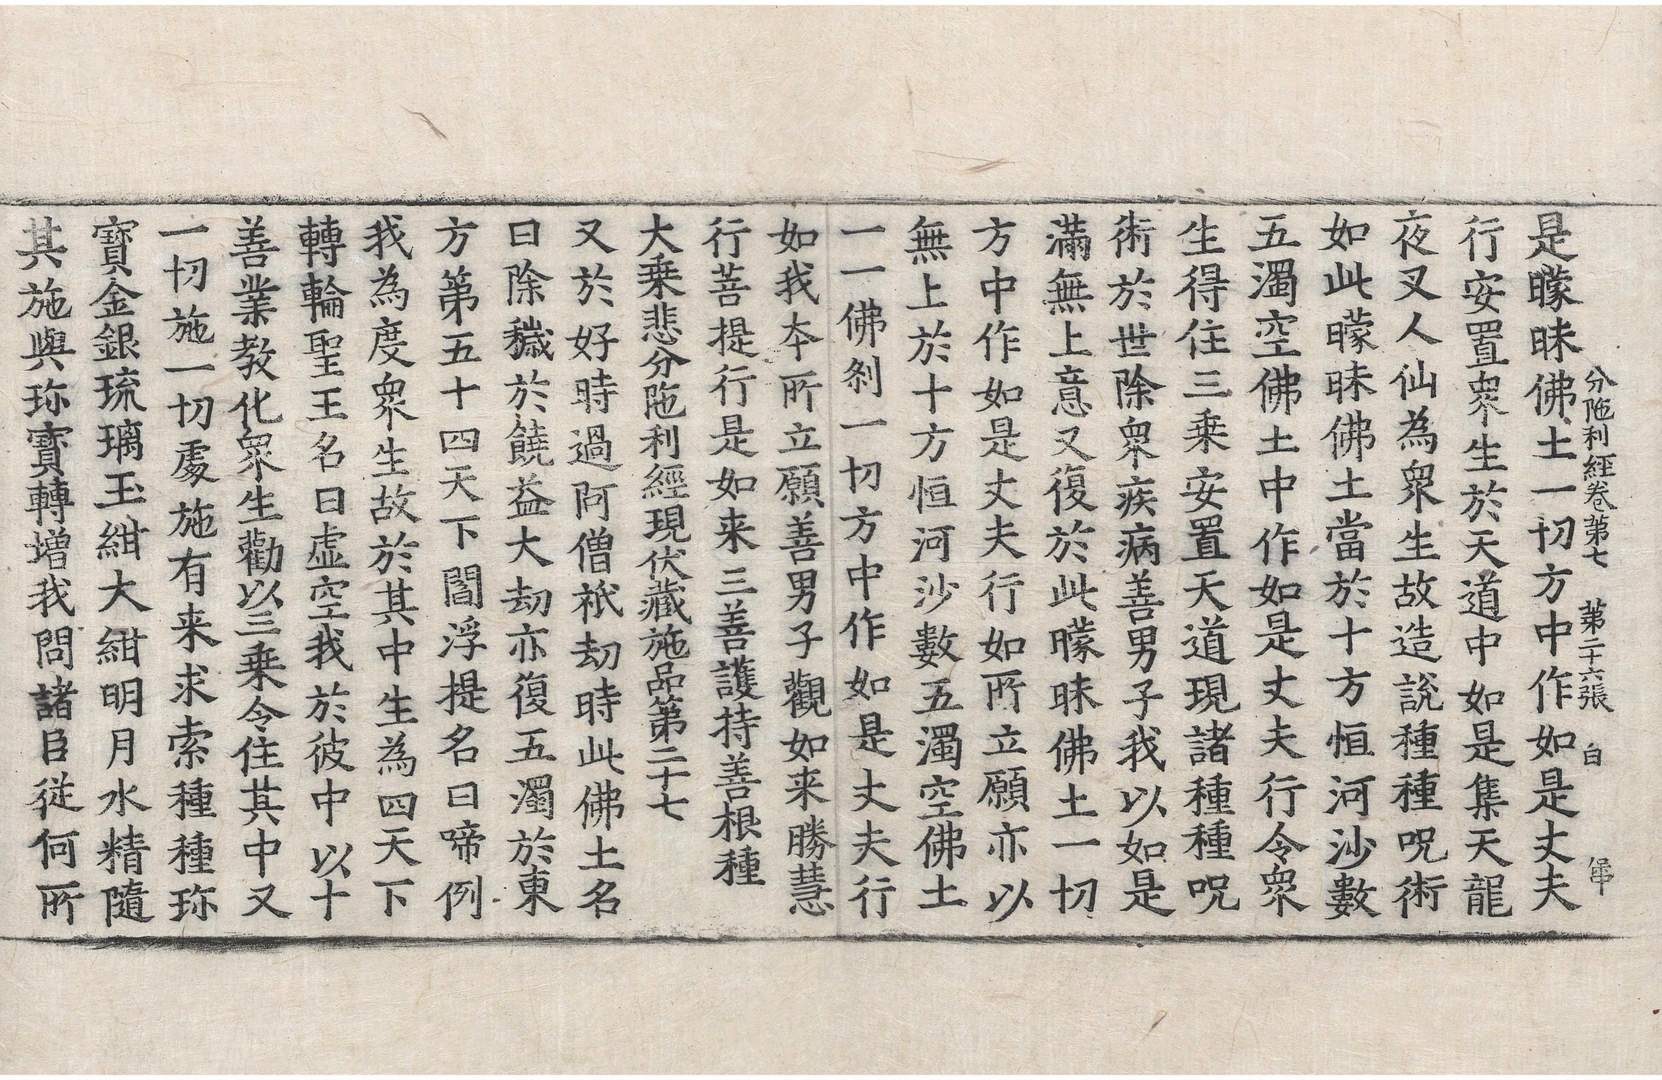 分陁利經卷第七　第二十六張　白　帰
是矇昧佛土一切方中作如是丈夫
行安置衆生於天道中如是集天龍
夜叉人仙為衆生故造說種種呪術
如此矇昧佛土當於十方恒河沙數
五濁空佛土中作如是丈夫行令衆
生得住三乗安置天道現諸種種呪
術於世除衆疾病善男子我以如是
滿無上意又復於此矇昧佛土一切
方中作如是丈夫行如所立願亦以
無上於十方恒河沙數五濁空佛土
一一佛剎一切方中作如是丈夫行
如我本所立願善男子觀如来勝慧
行菩提行是如来三善護持善根種
大乗悲分陁利經現伏藏施品第二十七
又於好時過阿僧祇劫時此佛土名
曰除穢於饒益大劫亦復五濁於東
方第五十四天下閻浮提名曰啼例
我為度衆生故於其中生為四天下
轉輪聖王名曰虛空我於彼中以十
善業教化衆生勸以三乗令住其中又
一切施一切處施有来求索種種珎
寶金銀琉璃玉紺大紺明月水精隨
其施與珎寶轉增我問諸臣從何所